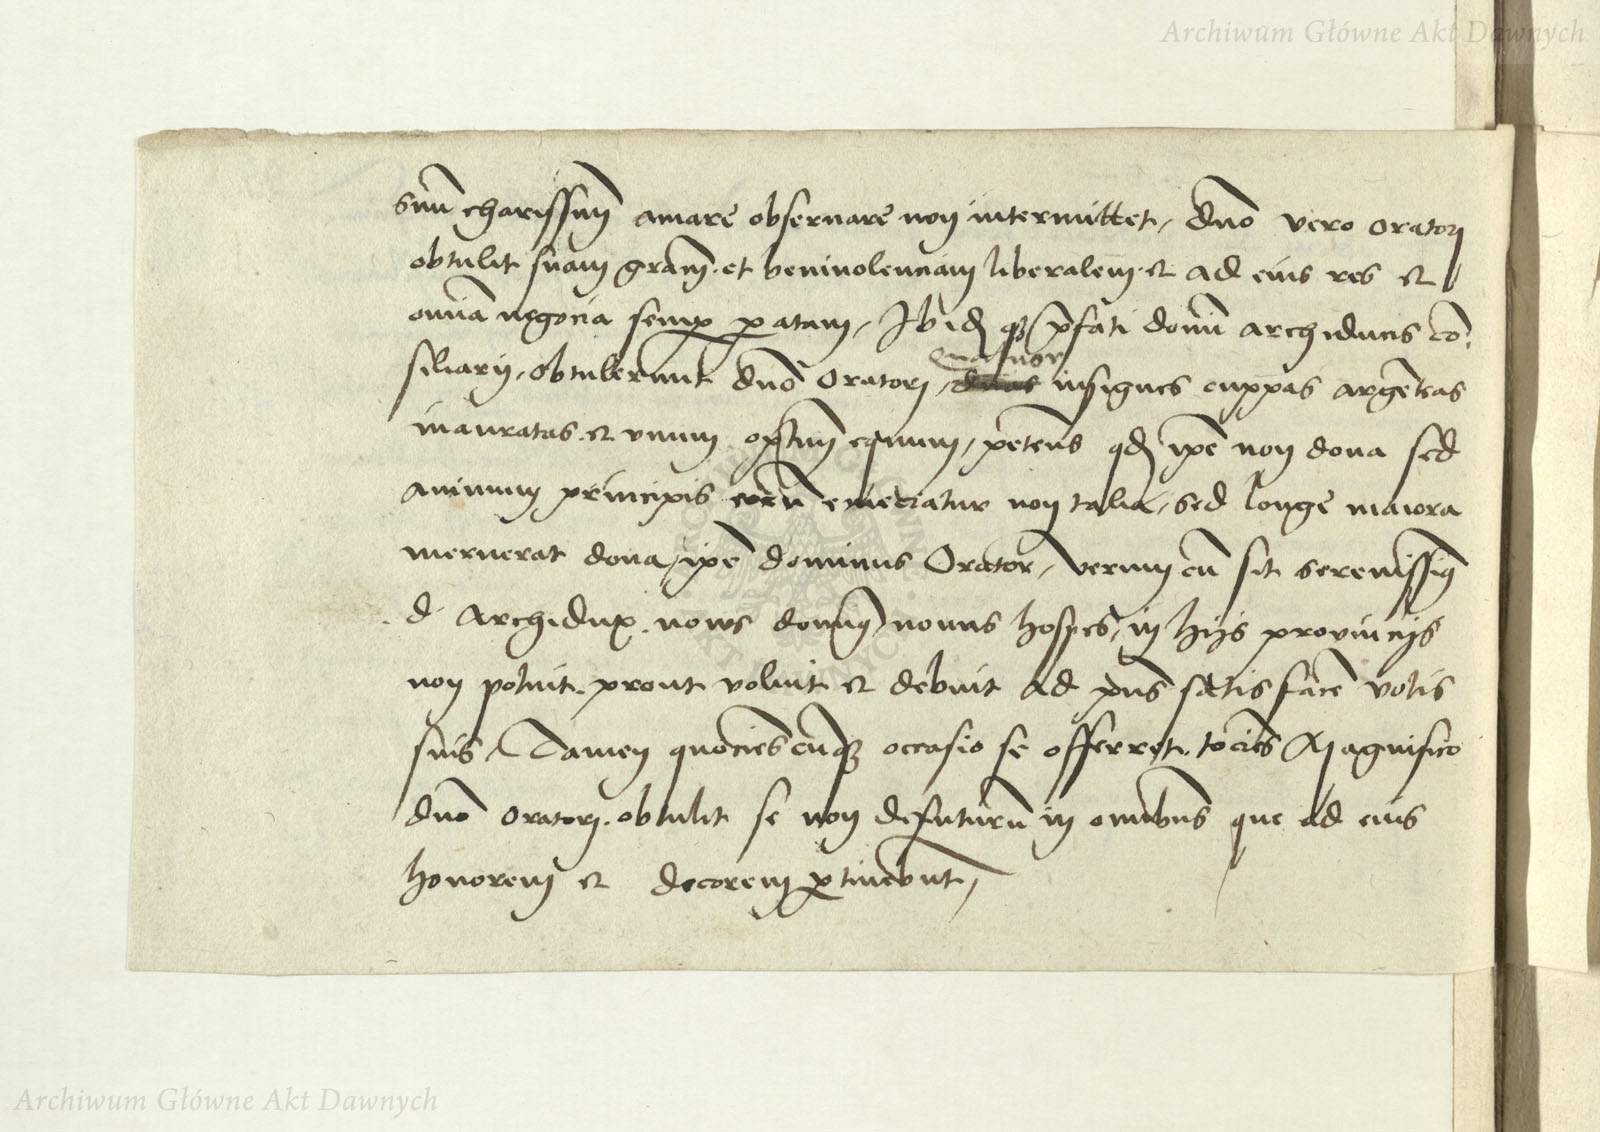 Archiwum Główne Akt Dawnych
suũ charissimũ amare obseruare non intermittet, dno vero oratori
obtulit suam gram et beniuolenciam liberalem et ad eius res et
omĩa negocia semp paratam, Ibidẽ qz p̃fati domĩ archiducis cõ-
siliarij obtulerunt dno Oratori, quatuor insignes cuppas argẽteas
inauratas et vnum optimũ equum, petens qd ipe non dona sed
animum principis metiatur non talia, sed longe maiora
meruerat dona, ipe dominus Orator, verum cũ sit serenissimũ
d Archidux nouus dominus nouus hospes, in hijs prouincijs
non potuit prout voluit et debuit ad p̃ns satisfacẽ votis
suis, Tamen quociescũqz occasio se offerret, tocies Magnifico
dno oratori obtulit se non defuturũ in omibus que ad eius
honorem et decorem ptinebunt,
Archiwum Główne Akt Dawnych